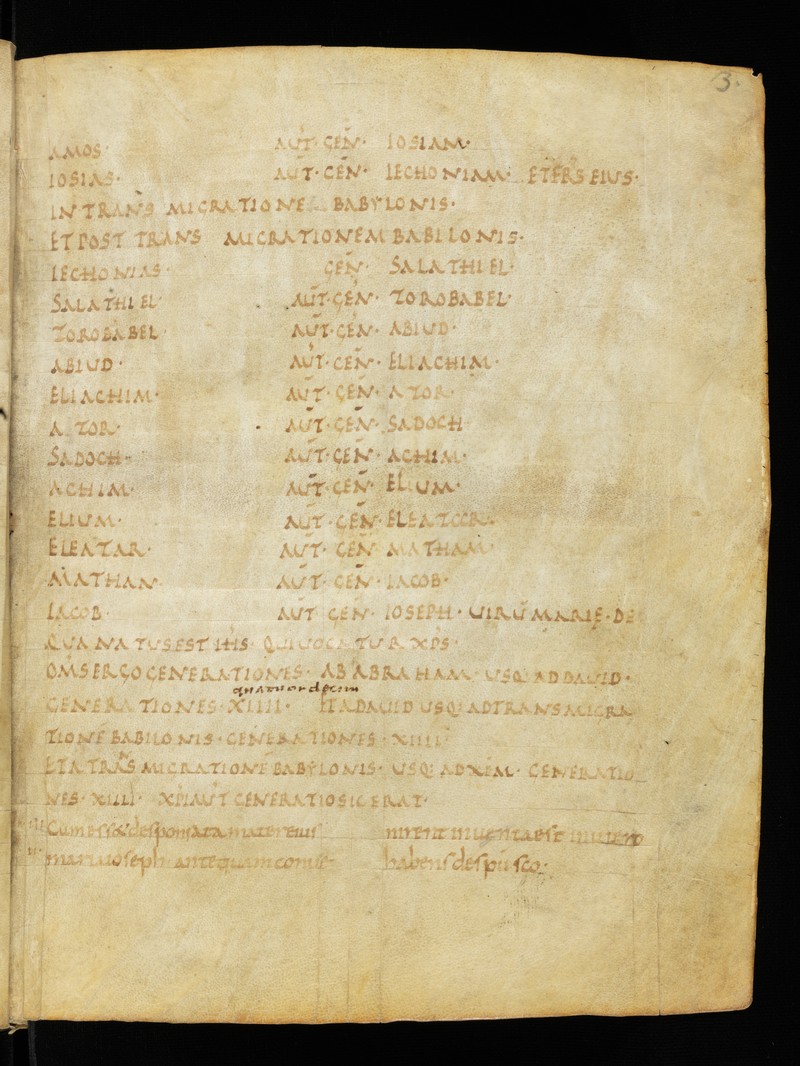 3.
AMOS· AUT· GEN· IOSIAM·
IOSIAS· AUT· GEN· IECHONIAM· ET FRS EIUS·
IN TRANS MIGRATIONE BABYLONIS·
ET POST TRANS MIGRATIONEM BABILONIS·
IECHONIAS· GEN· SALATHIEL·
SALATHIEL· AUT· GEN· ZOROBABEL·
ZOROBABEL· AUT· GEN· ABIUD·
ABIUD· AUT· GEN· ELIACHIM·
ELIACHIM· AUT· GEN· A ZOR·
A ZOR· AUT· GEN· SADOCH
SADOCH· AUT· GEN· ACHIM·
ACHIM· AUT· GEN· ELIUM·
ELIUM· AUT· GEN·
ELEATAR· AUT· GEN· MATHAM·
MATHAN AUT· GEN· IACOB·
IACOB· AUT· GEN· IOSEPH· UIRU MARIE· DE
QUA NATUS EST IHS· QUI UOCATUR XPS·
OMS ERGO GENERATIONES· AB ABRAHAM· USQ· AD DAUID·
quattuordecim
GENERATIONES· XIIII· ET A DAUID USQ· AD TRANSMIGRA
TIONE BABILONIS· GENERATIONES· XIIII·
ET A TRANS MIGRATIONE BABYLONIS· USQ· AD XPM· GENERATIO
NES· XIIII· XPI AUT GENERATIO SIC ERAT·
Cum esset desponsata mater eius
maria ioseph· antequam conue
nirent inuenta est in utero
habens de spu sco·